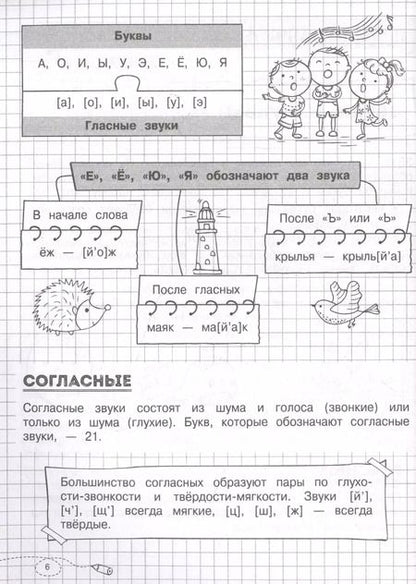 Буквы
А, О, И, Ы, У, Э, Е, Ё, Ю, Я
[а], [о], [и], [ы], [у], [э]
Гласные звуки
«Е», «Ё», «Ю», «Я» обозначают два звука
В начале слова
ёж — [й'о]ж
После «Ъ» или «Ь»
крылья — крыль[й'а]
После гласных
маяк — ма[й'а]к
СОГЛАСНЫЕ
Согласные звуки состоят из шума и голоса (звонкие) или
только из шума (глухие). Букв, которые обозначают согласные
звуки, — 21.
Большинство согласных образуют пары по глухо-
сти-звонкости и твёрдости-мягкости. Звуки [й'],
[ч'], [щ'] всегда мягкие, [ц], [ш], [ж] — всегда
твёрдые.
6